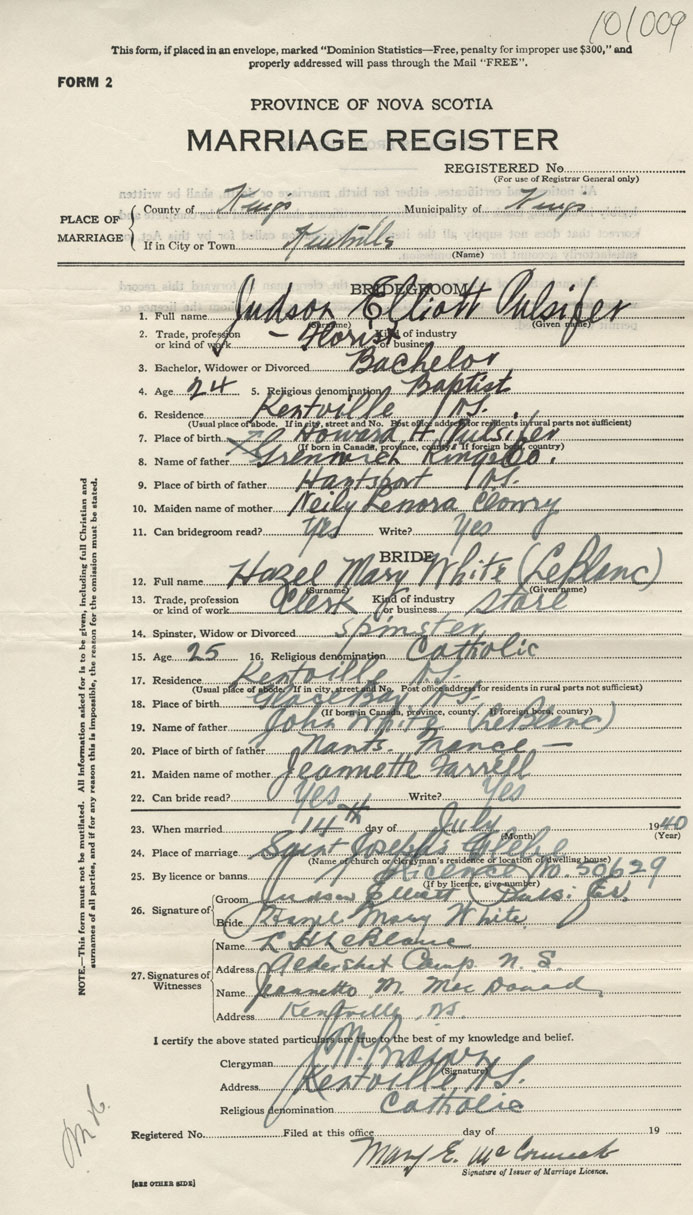 101009
This form, if placed in an envelope, marked "Dominion Statistics—Free, penalty for improper use $300," and
properly addressed will pass through the Mail "FREE".
FORM 2
PROVINCE OF NOVA SCOTIA
MARRIAGE REGISTER
REGISTERED No.
(For use of Registrar General only)
PLACE OF MARRIAGE
County of Kings Municipality of Kings
If in City or Town Kentville
(Name)
BRIDEGROOM
1. Full name Judson Elliott Pulsifer
(Surname) (Given name)
2. Trade, profession or kind of work - Florist Kind of industry or business
3. Bachelor, Widower or Divorced Bachelor
4. Age 24 5. Religious denomination Baptist
6. Residence Kentville N.S.
(Usual place of abode. If in city, street and No. Post office address for residents in rural parts not sufficient)
7. Place of birth Howard H. Pulsifer
(If born in Canada, province, county. If foreign born, country)
8. Name of father Grenwick Kings Co.
9. Place of birth of father Hantsport N.S.
10. Maiden name of mother Neily Lenora Clowry
11. Can bridegroom read? Yes Write? Yes
BRIDE
12. Full name Hazel Mary White (LeBlanc)
(Surname) (Given name)
13. Trade, profession or kind of work Clerk Kind of industry or business store
14. Spinster, Widow or Divorced spinster
15. Age 25 16. Religious denomination Catholic
17. Residence Kentville N.S.
(Usual place of abode. If in city, street and No. Post office address for residents in rural parts not sufficient)
18. Place of birth Glace Bay N.S.
(If born in Canada, province, county. If foreign born, country)
19. Name of father John White (LeBlanc)
20. Place of birth of father Nants. France —
21. Maiden name of mother Jeannette Farrell
22. Can bride read? Yes Write? Yes
23. When married 14th day of July 1940
(Month) (Year)
24. Place of marriage Saint Joseph's Glebe
(Name of church or clergyman's residence or location of dwelling house)
25. By licence or banns Licence No. 50629
(If by licence, give number)
26. Signature of
Groom Judson Elliott Pulsifer
Bride Hazel Mary White
27. Signatures of Witnesses
Name L H LeBlanc
Address Aldershot Camp N. S.
Name Jeannette M. Mac Donald
Address Kentville, N.S.
I certify the above stated particulars are true to the best of my knowledge and belief.
Clergyman J. H. Brown
(Signature)
Address Kentville N.S.
Religious denomination Catholic
Registered No. Filed at this office day of 19
Mary E. McCormick
Signature of Issuer of Marriage Licence.
[SEE OTHER SIDE]
NOTE.—This form must not be mutilated. All information asked for is to be given, including full Christian and
surnames of all parties, and if for any reason this is impossible, the reason for the omission must be stated.